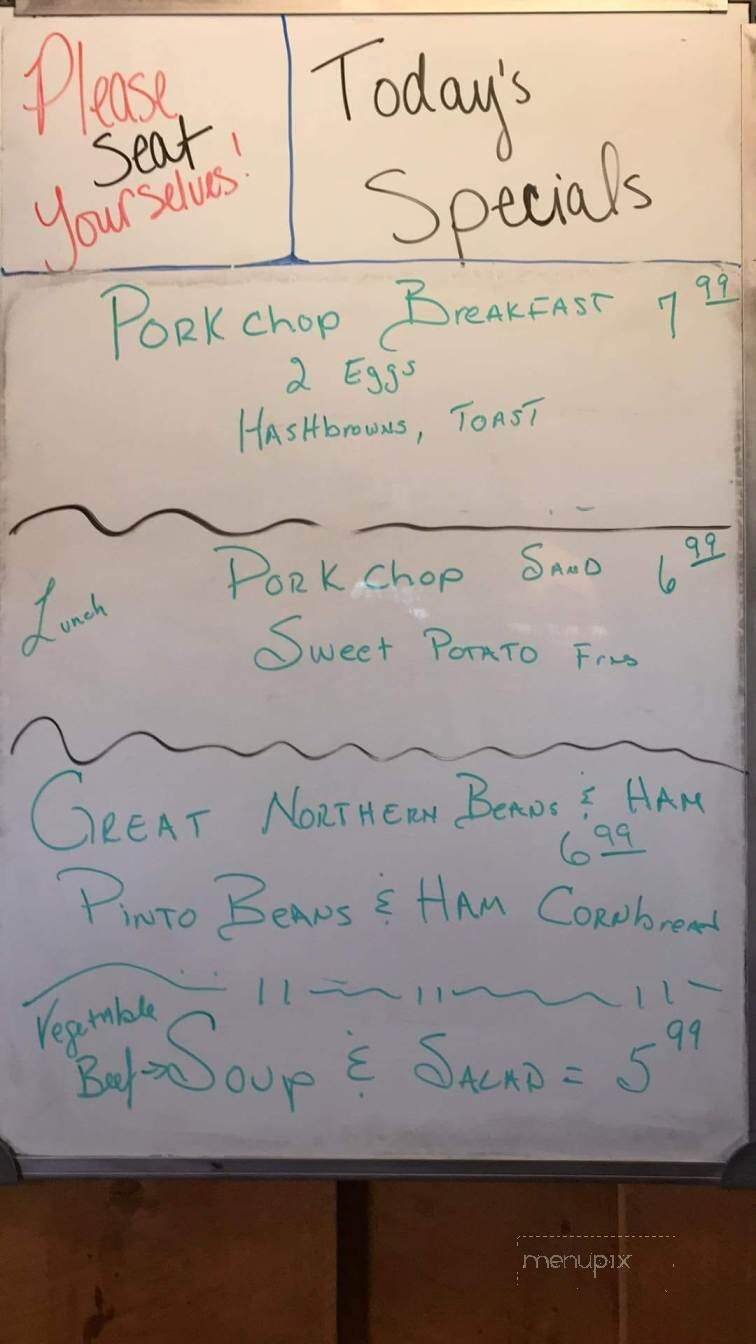 Please
Seat
Yourselves!
Today's
Specials
Pork chop Breakfast 7 99
2 Eggs
Hashbrowns, Toast
Lunch
Pork chop Sand 6 99
Sweet Potato Fries
Great Northern Beans & Ham
6 99
Pinto Beans & Ham Cornbread
Vegetable
Beef → Soup & Salad = 5 99
menupix